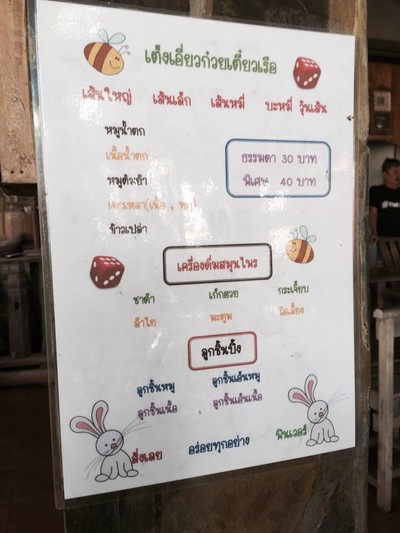 เต็งเอี่ยวก๋วยเตี๋ยวเรือ
เส้นใหญ่ เส้นเล็ก เส้นหมี่ บะหมี่ วุ้นเส้น
หมูน้ำตก
เนื้อน้ำตก
ธรรมดา 30 บาท
หมูต้มยำ
พิเศษ 40 บาท
เกาเหลา(เนื้อ , หมู)
ข้าวเปล่า
เครื่องดื่มสมุนไพร
ชาดำ เก๊กฮวย กระเจี๊ยบ
ลำไย มะตูม โอเลี้ยง
ลูกชิ้นปิ้ง
ลูกชิ้นหมู ลูกชิ้นเอ็นหมู
ลูกชิ้นเนื้อ ลูกชิ้นเอ็นเนื้อ
สั่งเลย อร่อยทุกอย่าง ฟินเวอร์